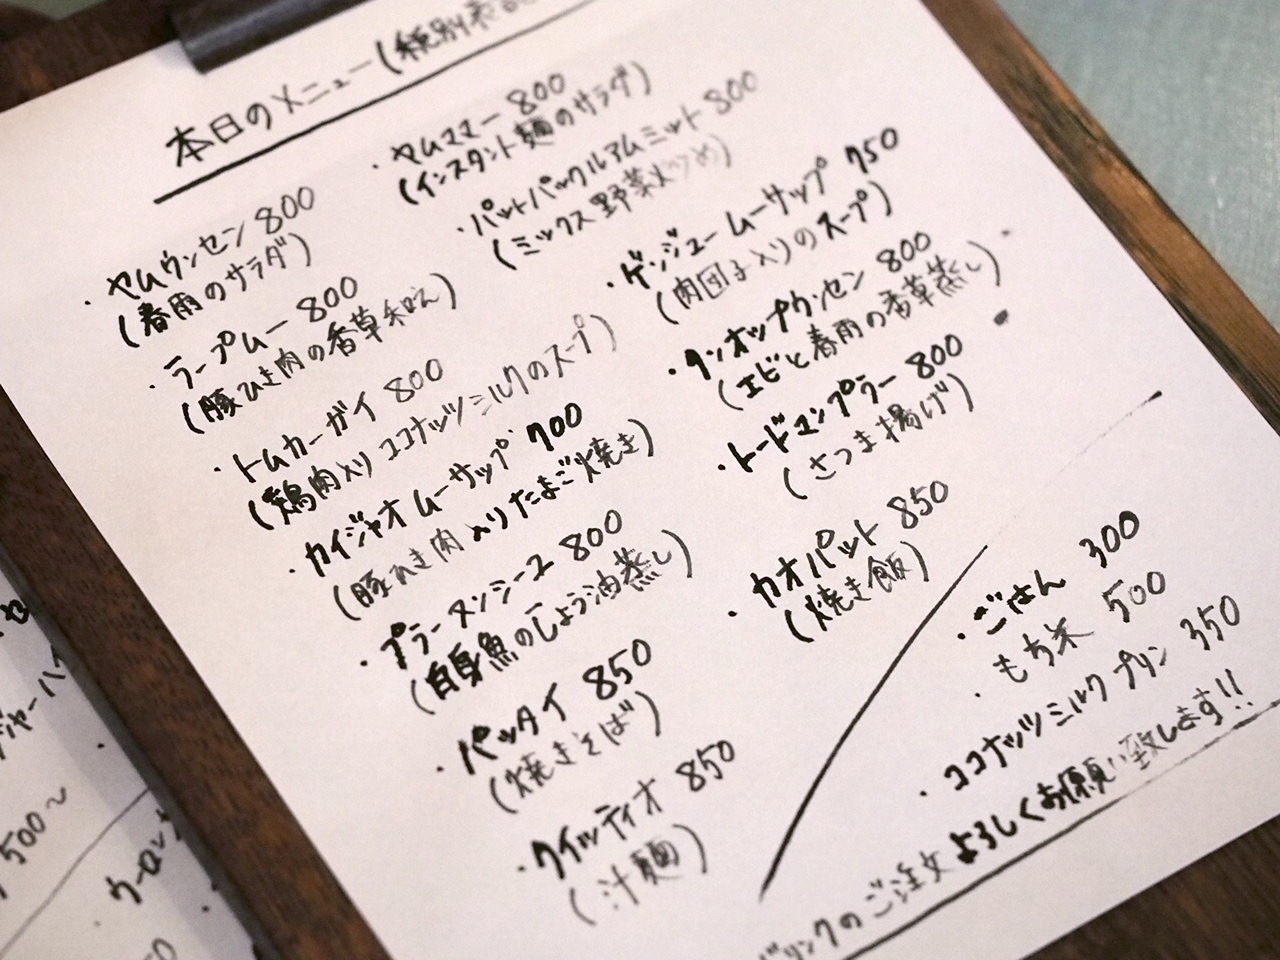 本日のメニュー(種別表
・ヤムウンセン 800
(春雨のサラダ)
・ラープムー 800
(豚ひき肉の香草和え)
・トムカーガイ 800
(鶏肉入りココナッツミルクのスープ)
・カイジャオムーサップ 700
(豚ひき肉入りたまご焼き)
・プラーヌンシーユ 800
(白身魚のしょう油蒸し)
・パッタイ 850
(焼きそば)
・クイッティオ 850
(汁麺)
・ヤムママー 800
(インスタント麺のサラダ)
・パットパックルアムミット 800
(ミックス野菜いため)
・ゲンジュームーサップ 750
(肉団子入りのスープ)
・クンオップウンセン 800
(エビと春雨の香草蒸し)
・トードマンプラー 800
(さつま揚げ)
・カオパット 850
(焼き飯)
・ごはん 300
・もち米 500
・ココナッツミルクプリン 350
ドリンクのご注文よろしくお願い致します!!
ジャーハイ
500〜
・ウーロン